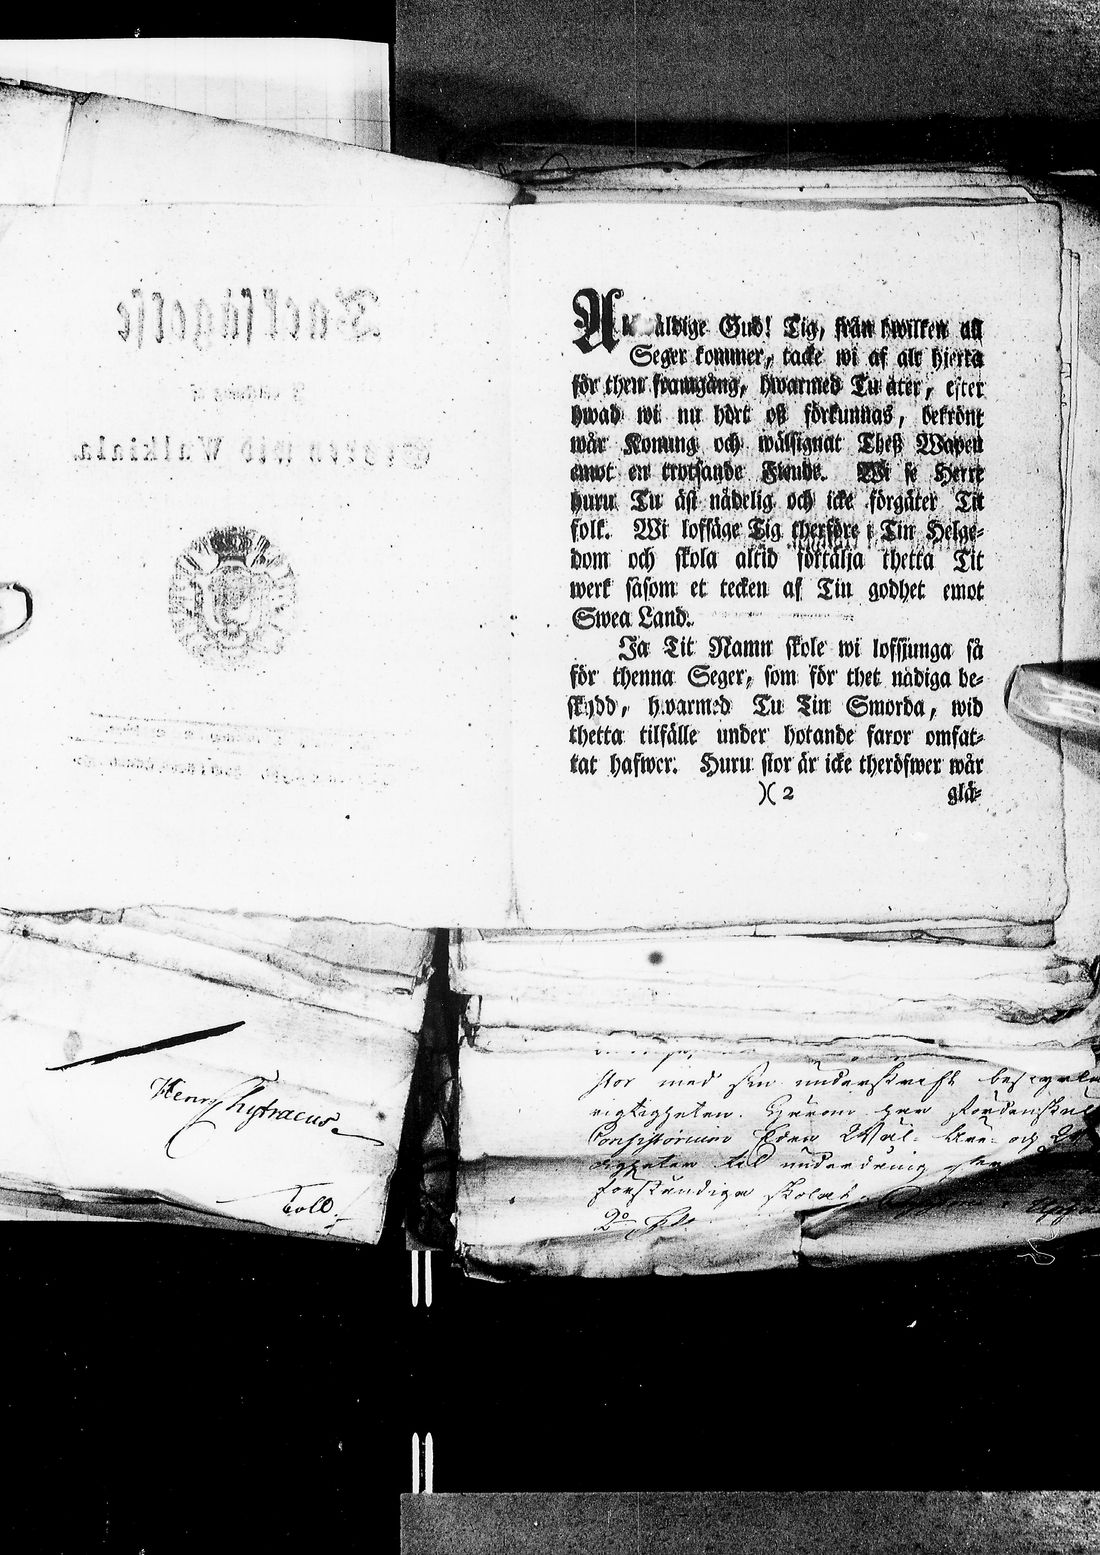 Tacksägelse
Segren wid Walkiala.
Allsmäldige Gud! Tig, från hwilken all
Seger kommer, tacke wi af alt hjerta
för then framgång, hwarmed Tu åter, efter
hwad wi nu hört oß förkunnas, bekrönt
wår Konung och wälsignat Theß Wapen
emot en trotsande Fiende. Wi se Herre
huru Tu äst nådelig och icke förgäter Tit
folk. Wi lofsäge Tig therföre i Tin Helge-
dom och skola altid förtälja thetta Tit
werk såsom et tecken af Tin godhet emot
Swea Land.
Ja Tit Namn skole wi lofsjunga så
för thenna Seger, som för thet nådiga be-
skydd, hwarmed Tu Tin Smorda, wid
thetta tilfälle under hotande faror omfat-
tat hafwer. Huru stor är icke theröfwer wår
)( 2 glä-
Henry Kytraeus
Coll.
stor med sin underskrift besegla
rigtigheten.
Consistorium
til underdånig
forständiga skolat.